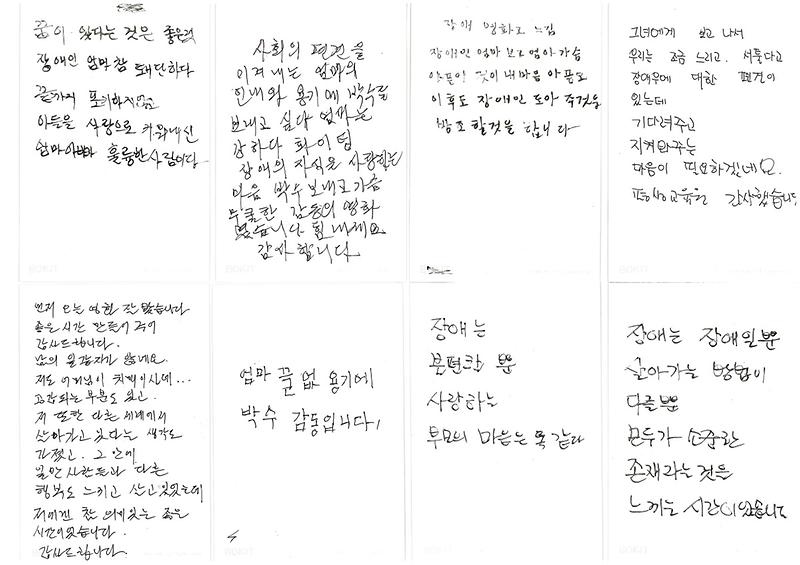 꿈이 있다는 것은 좋은것
장애인 엄마 참 대단하다
끝까지 포기하지않고
아들을 사랑으로 키워내신
엄마아빠 훌륭한사람이다
사회의 편견을
이겨내는 엄마의
인내와 용기에 박수를
보내고 싶다 엄마는
강하다 화이팅
장애의 자식은 사랑하는
마음 박수 보내고 가슴
뭉쿨한 감동의 영화
였습니다 힘내세요
감사합니다
장애 영화고 느낌
장애인 엄마 보고 엄마 가슴
아픔이 것이 내마음 아픔도
이후도 장애인 도아 주것등
방조 할것을 합니다
그녀에게 보고 나서
우리는 조금 느리고. 서툴다고
장애우에 대한 편견이
있는데
기다려주고
지켜봐주는
마음이 필요하겠네요.
평생교육원 감사했습니다
먼저 오늘 영화 잘 봤습니다
좋은 시간 만들어 주어
감사드립니다.
남의 일 같지가 않네요.
저도 어머님이 치매이시네...
공감되는 부분도 있고.
저 또한 다른 세계에서
살아가고 있다는 생각도
가졌고. 그 안에
일반사람들과 다른
행복도 느끼고 살고있었는데
저에겐 참 의미있는 좋은
시간이었습니다.
감사드립니다.
엄마 끝 없 용기에
박수 감동입니다,
장애는
불편한 뿐
사랑하는
부모의 마음은 똑 같다
장애는 장애일뿐
살아가는 방법이
다를뿐
모두가 소중한
존재라는 것을
느끼는 시간이었습니다
BOKIT
BOKIT
BOKIT
BOKIT